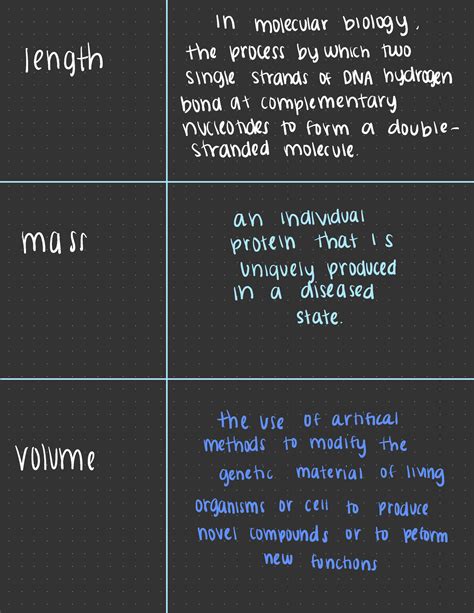 length
In molecular biology,
the process by which two
single strands of DNA hydrogen
bond at complementary
nucleotides to form a double-
stranded molecule.
mass
an individual
protein that is
uniquely produced
in a diseased
state.
volume
the use of artifical
methods to modify the
genetic material of living
organisms or cell to produce
novel compounds or to peform
new functions